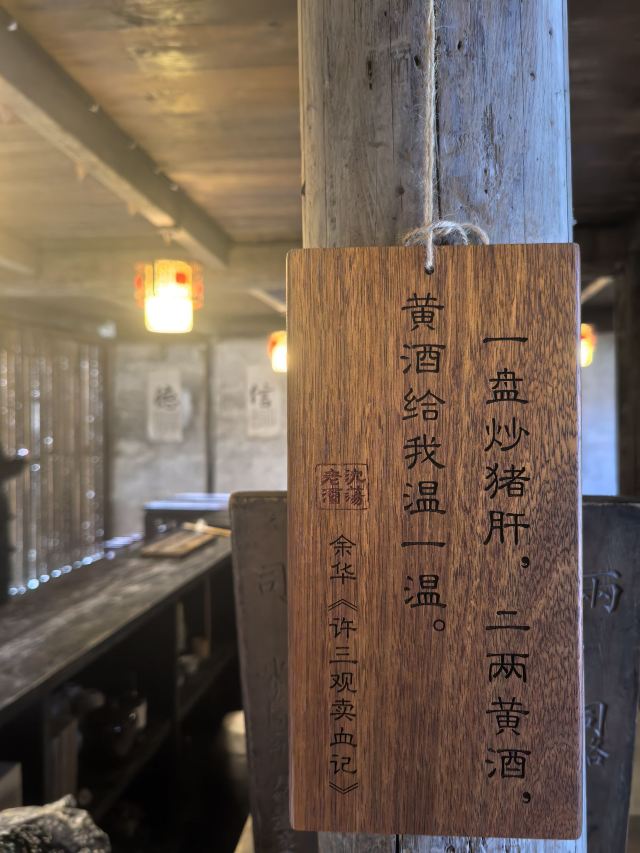 一盘炒猪肝，二两黄酒，
黄酒给我温一温。
沈荡
老酒
余华《许三观卖血记》
德
信
司
两